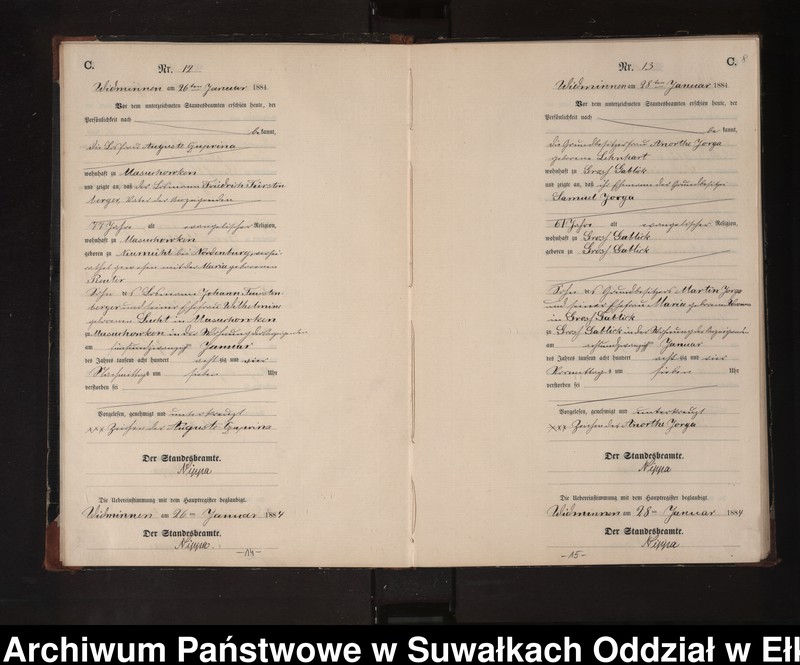 C.
Nr. 14
Widminnen am 26ten Januar 1884.
Vor dem unterzeichneten Standesbeamten erschien heute, der
Persönlichkeit nach
be kannt,
die Losfrau Auguste
wohnhaft zu Masuchowken
und zeigte an, daß der Losmann Friedrich Fürsten
berger, Vater der Anzeigenden
77 Jahre alt evangelischer Religion,
wohnhaft zu Masuchowken
geboren zu Neumühl bei Nordenburg, verhei-
rathet gewesen mit der Maria geborenen
Sohn des Losmann Johann Fürsten
berger und seiner Ehefrau Wilhelmine
geborenen in Masuchowken
zu Masuchowken in der Wohnung der Anzeigenden
am fünfundzwanzig Januar
des Jahres tausend acht hundert acht zig und vier
Nachmittags um sieben Uhr
verstorben sei
Vorgelesen, genehmigt und unterkreuzt
xxx Zeichen der Auguste
Der Standesbeamte.
Nippa
Die Uebereinstimmung mit dem Hauptregister beglaubigt.
Widminnen am 26ten Januar 1884
Der Standesbeamte.
Nippa.
-14-
C. 8
Nr. 15
Widminnen am 28ten Januar 1884
Vor dem unterzeichneten Standesbeamten erschien heute, der
Persönlichkeit nach
be kannt,
die Grundbesitzersfrau Anorthe Jorga
geborene Lehnhart
wohnhaft zu Gross Gablick
und zeigte an, daß ihr Ehemann der Grundbesitzer
Samuel Jorga
61 Jahre alt evangelischer Religion,
wohnhaft zu Gross Gablick
geboren zu Gross Gablick
Sohn des Grundbesitzers Martin Jorga
und seiner Ehefrau Maria geborenen
in Gross Gablick
zu Gross Gablick in der Wohnung der Anzeigenden
am achtundzwanzig Januar
des Jahres tausend acht hundert acht zig und vier
Vormittags um sieben Uhr
verstorben sei
Vorgelesen, genehmigt und unterkreuzt
xxx Zeichen der Anorthe Jorga
Der Standesbeamte.
Nippa
Die Uebereinstimmung mit dem Hauptregister beglaubigt.
Widminnen am 28ten Januar 1884
Der Standesbeamte.
Nippa
-15-
Archiwum Państwowe w Suwałkach Oddział w Ełk